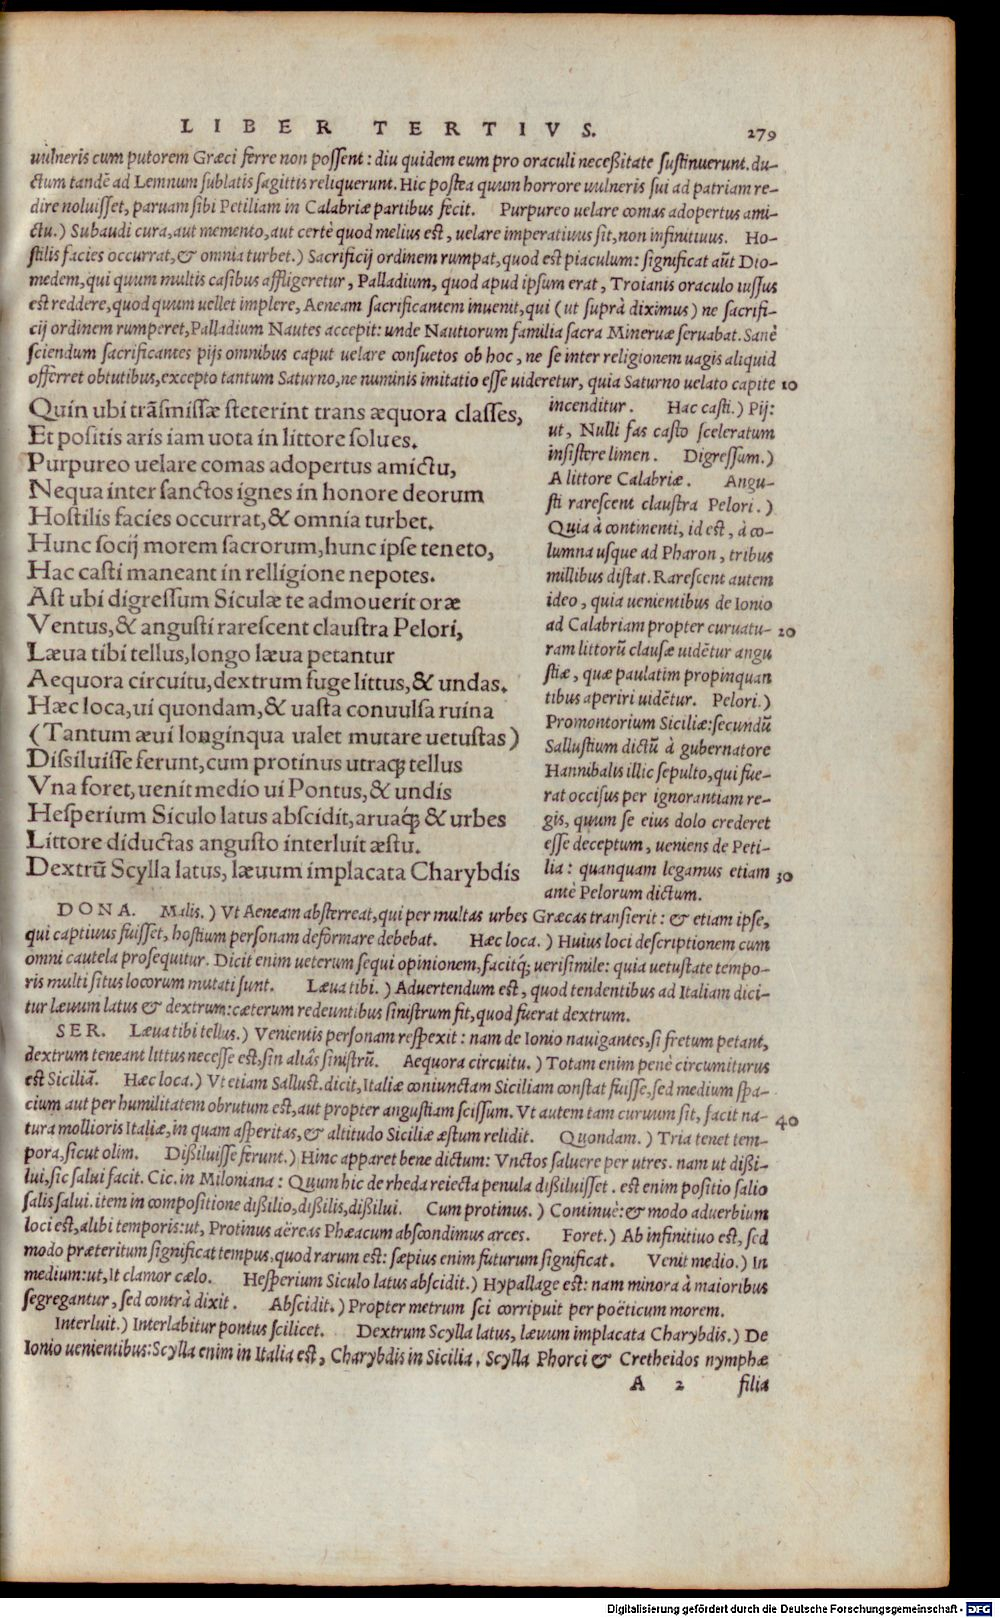 LIBER TERTIVS. 279
uulneris cum putorem Græci ferre non possent: diu quidem eum pro oraculi neceßitate sustinuerunt. du-
ctum tandẽ ad Lemnum sublatis sagittis reliquerunt. Hic postea quum horrore uulneris sui ad patriam re-
dire noluisset, paruam sibi Petiliam in Calabriæ partibus fecit. Purpureo uelare comas adopertus ami-
ctu.) Subaudi cura, aut memento, aut certè quod melius est, uelare imperatiuus sit, non infinitiuus. Ho-
stilis facies occurrat, & omnia turbet.) Sacrificij ordinem rumpat, quod est piaculum: significat aũt Dio-
medem, qui quum multis casibus affligeretur, Palladium, quod apud ipsum erat, Troianis oraculo iussus
est reddere, quod quum uellet implere, Aeneam sacrificantem inuenit, qui (ut suprà diximus) ne sacrifi-
cij ordinem rumperet, Palladium Nautes accepit: unde Nautiorum familia sacra Mineruæ seruabat. Sanè
sciendum sacrificantes pijs omnibus caput uelare consuetos ob hoc, ne se inter religionem uagis aliquid
offerret obtutibus, excepto tantum Saturno, ne numinis imitatio esse uideretur, quia Saturno uelato capite 10
Quin ubi trãsmissæ steterint trans æquora classes,
Et positis aris iam uota in littore solues.
Purpureo uelare comas adopertus amictu,
Nequa inter sanctos ignes in honore deorum
Hostilis facies occurrat, & omnia turbet.
Hunc socij morem sacrorum, hunc ipse teneto,
Hac casti maneant in relligione nepotes.
Ast ubi digressum Siculæ te admouerit oræ
Ventus, & angusti rarescent claustra Pelori,
Læua tibi tellus, longo læua petantur
Aequora circuitu, dextrum fuge littus, & undas.
Hæc loca, ui quondam, & uasta conuulsa ruina
(Tantum æui longinqua ualet mutare uetustas)
Dissiluisse ferunt, cum protinus utraq; tellus
Vna foret, uenit medio ui Pontus, & undis
Hesperium Siculo latus abscidit, aruaq́; & urbes
Littore diductas angusto interluit æstu.
Dextrũ Scylla latus, læuum implacata Charybdis
incenditur. Hac casti.) Pij:
ut, Nulli fas casto sceleratum
insistere limen. Digressum.)
A littore Calabriæ. Angu-
sti rarescent claustra Pelori.)
Quia à continenti, id est, à co-
lumna usque ad Pharon, tribus
millibus distat. Rarescent autem
ideo, quia uenientibus de Ionio
ad Calabriam propter curuatu- 20
ram littorũ clausæ uidẽtur angu
stiæ, quæ paulatim propinquan
tibus aperiri uidẽtur. Pelori.)
Promontorium Siciliæ: secundũ
Sallustium dictũ à gubernatore
Hannibalis illic sepulto, qui fue-
rat occisus per ignorantiam re-
gis, quum se eius dolo crederet
esse deceptum, ueniens de Peti-
lia: quanquam legamus etiam 30
antè Pelorum dictum.
DONA. Malis.) Vt Aeneam absterreat, qui per multas urbes Græcas transierit: & etiam ipse,
qui captiuus fuisset, hostium personam deformare debebat. Hæc loca.) Huius loci descriptionem cum
omni cautela prosequitur. Dicit enim ueterum sequi opinionem, facitq́; uerisimile: quia uetustate tempo-
ris multi situs locorum mutati sunt. Læua tibi.) Aduertendum est, quod tendentibus ad Italiam dici-
tur læuum latus & dextrum: cæterum redeuntibus sinistrum fit, quod fuerat dextrum.
SER. Læua tibi tellus.) Venientis personam respexit: nam de Ionio nauigantes, si fretum petant,
dextrum teneant littus necesse est, sin aliâs sinistrũ. Aequora circuitu.) Totam enim penè circumiturus
est Siciliã. Hæc loca.) Vt etiam Sallust. dicit, Italiæ coniunctam Siciliam constat fuisse, sed medium spa-
cium aut per humilitatem obrutum est, aut propter angustiam scissum. Vt autem tam curuum sit, facit na- 40
tura mollioris Italiæ, in quam asperitas, & altitudo Siciliæ æstum relidit. Quondam.) Tria tenet tem-
pora, sicut olim. Dißiluisse ferunt.) Hinc apparet bene dictum: Vnctos saluere per utres. nam ut dißi-
lui, sic salui facit. Cic. in Miloniana: Quum hic de rheda reiecta penula dißiluisset. est enim positio salio
salis salui. item in compositione dißilio, dißilis, dißilui. Cum protinus.) Continuè: & modo aduerbium
loci est, alibi temporis: ut, Protinus aëreas Phæacum abscondimus arces. Foret.) Ab infinitiuo est, sed
modo præteritum significat tempus, quod rarum est: sæpius enim futurum significat. Venit medio.) In
medium: ut, It clamor cælo. Hesperium Siculo latus abscidit.) Hypallage est: nam minora à maioribus
segregantur, sed contrà dixit. Abscidit.) Propter metrum sci corripuit per poëticum morem.
Interluit.) Interlabitur pontus scilicet. Dextrum Scylla latus, læuum implacata Charybdis.) De
Ionio uenientibus: Scylla enim in Italia est, Charybdis in Sicilia. Scylla Phorci & Cretheidos nymphæ
A 2 filia
Digitalisierung gefördert durch die Deutsche Forschungsgemeinschaft - DFG